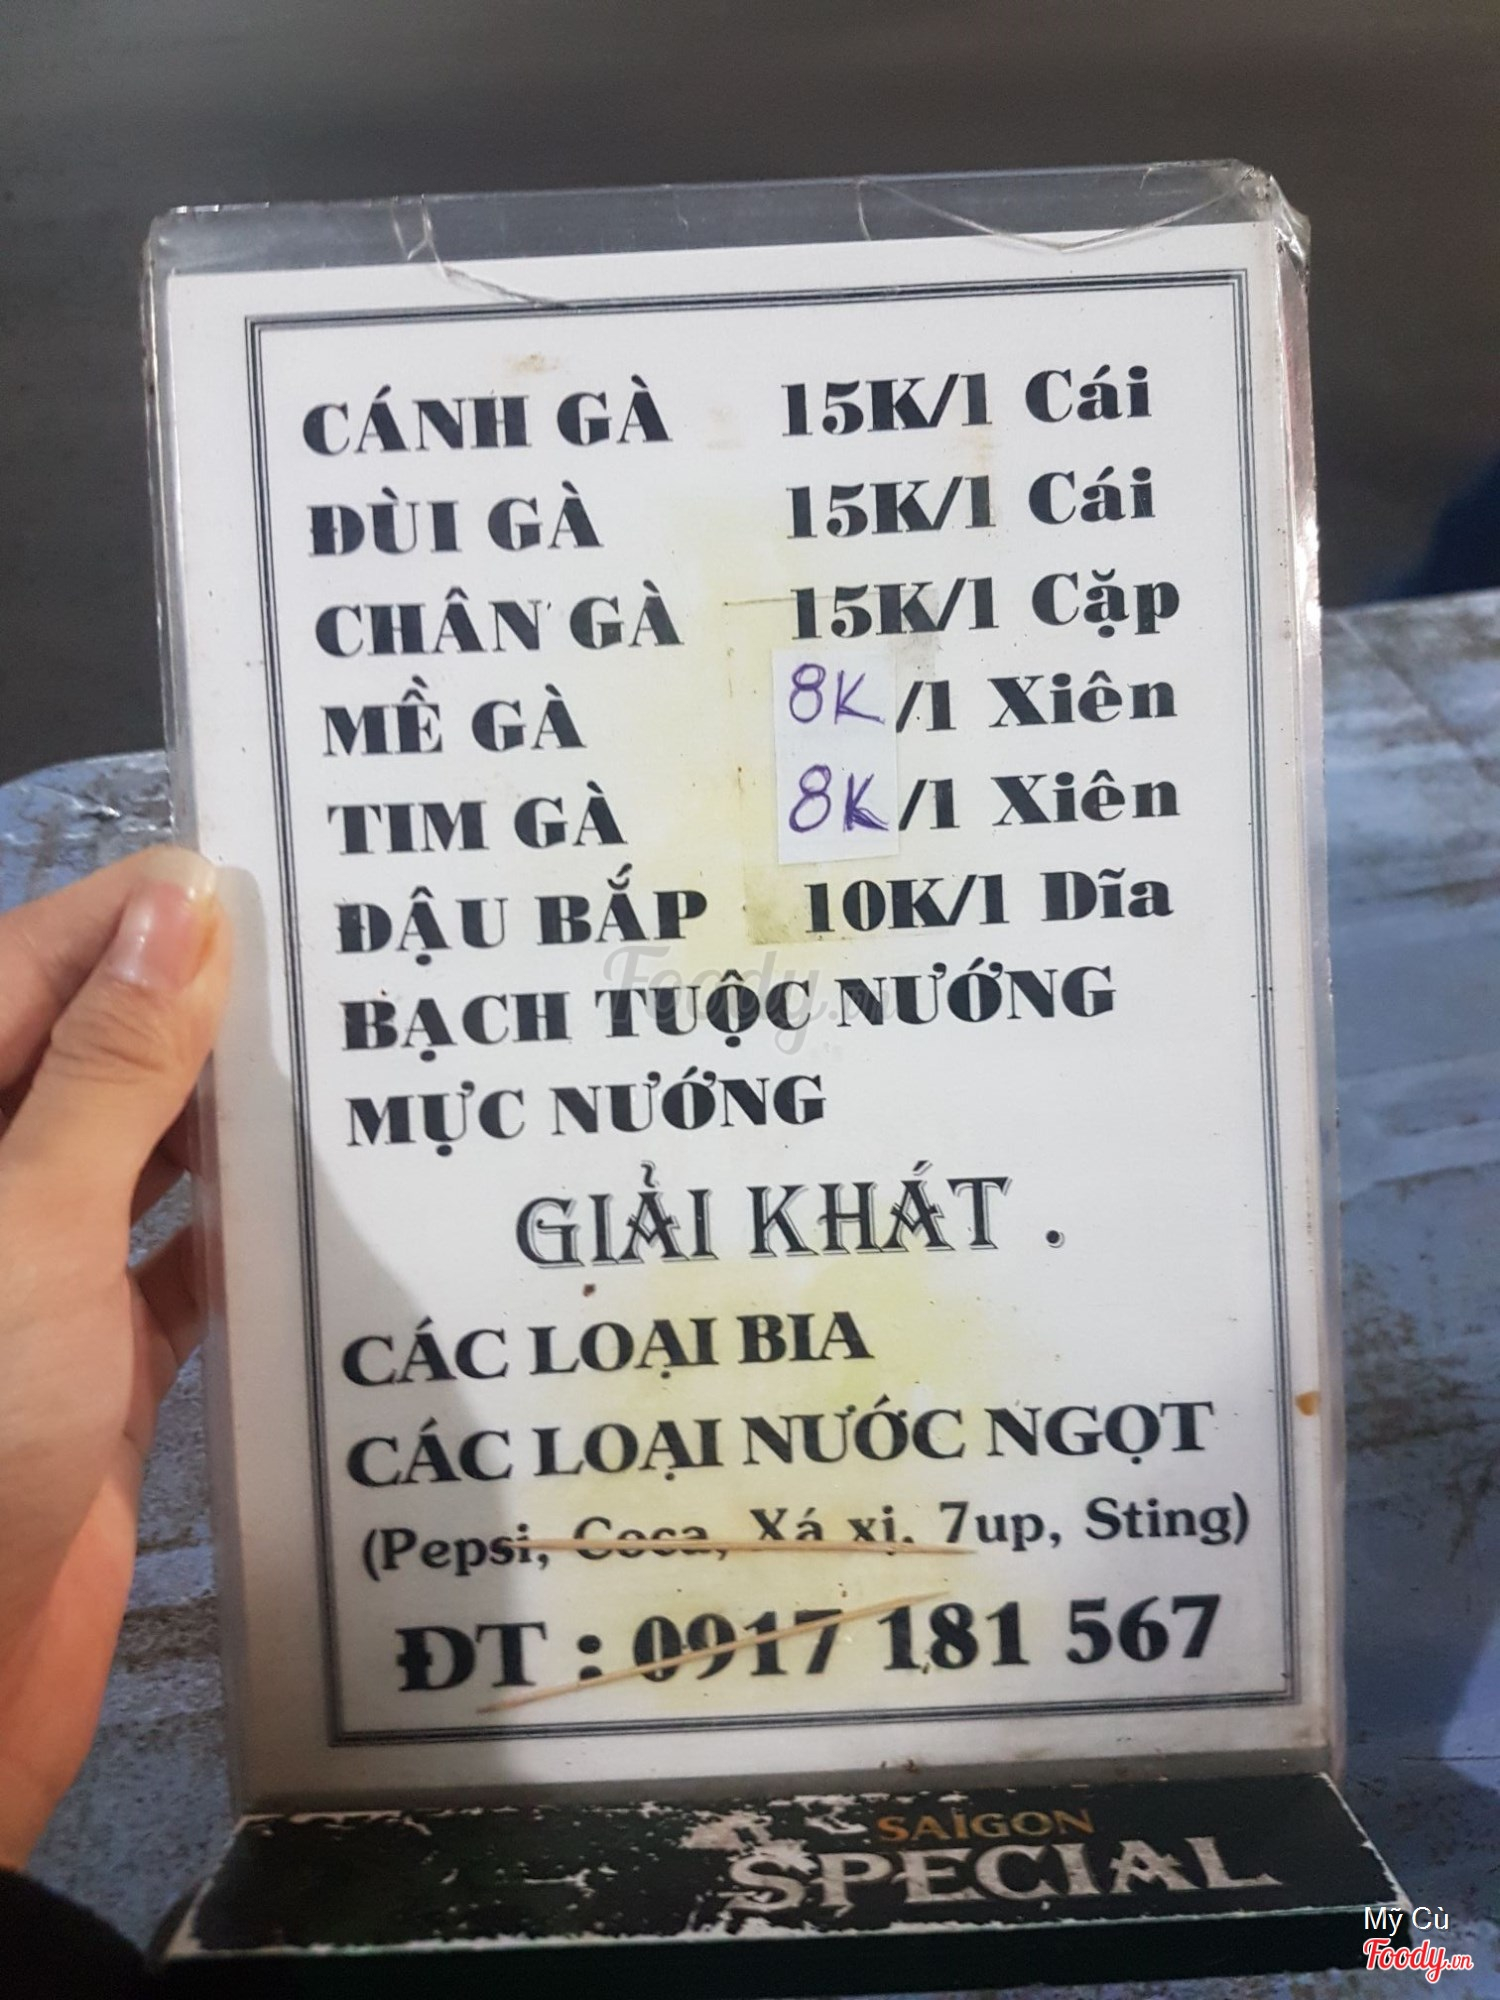 CÁNH GÀ 15K/1 Cái
ĐÙI GÀ 15K/1 Cái
CHÂN GÀ 15K/1 Cặp
MỀ GÀ 8K/1 Xiên
TIM GÀ 8K/1 Xiên
ĐẬU BẮP 10K/1 Dĩa
BẠCH TUỘC NƯỚNG
MỰC NƯỚNG
GIẢI KHÁT .
CÁC LOẠI BIA
CÁC LOẠI NƯỚC NGỌT
(Pepsi, Coca, Xá xị, 7up, Sting)
ĐT : 0917 181 567
SAIGON
SPECIAL
Foody.vn
Mỹ Cù
Foody.vn